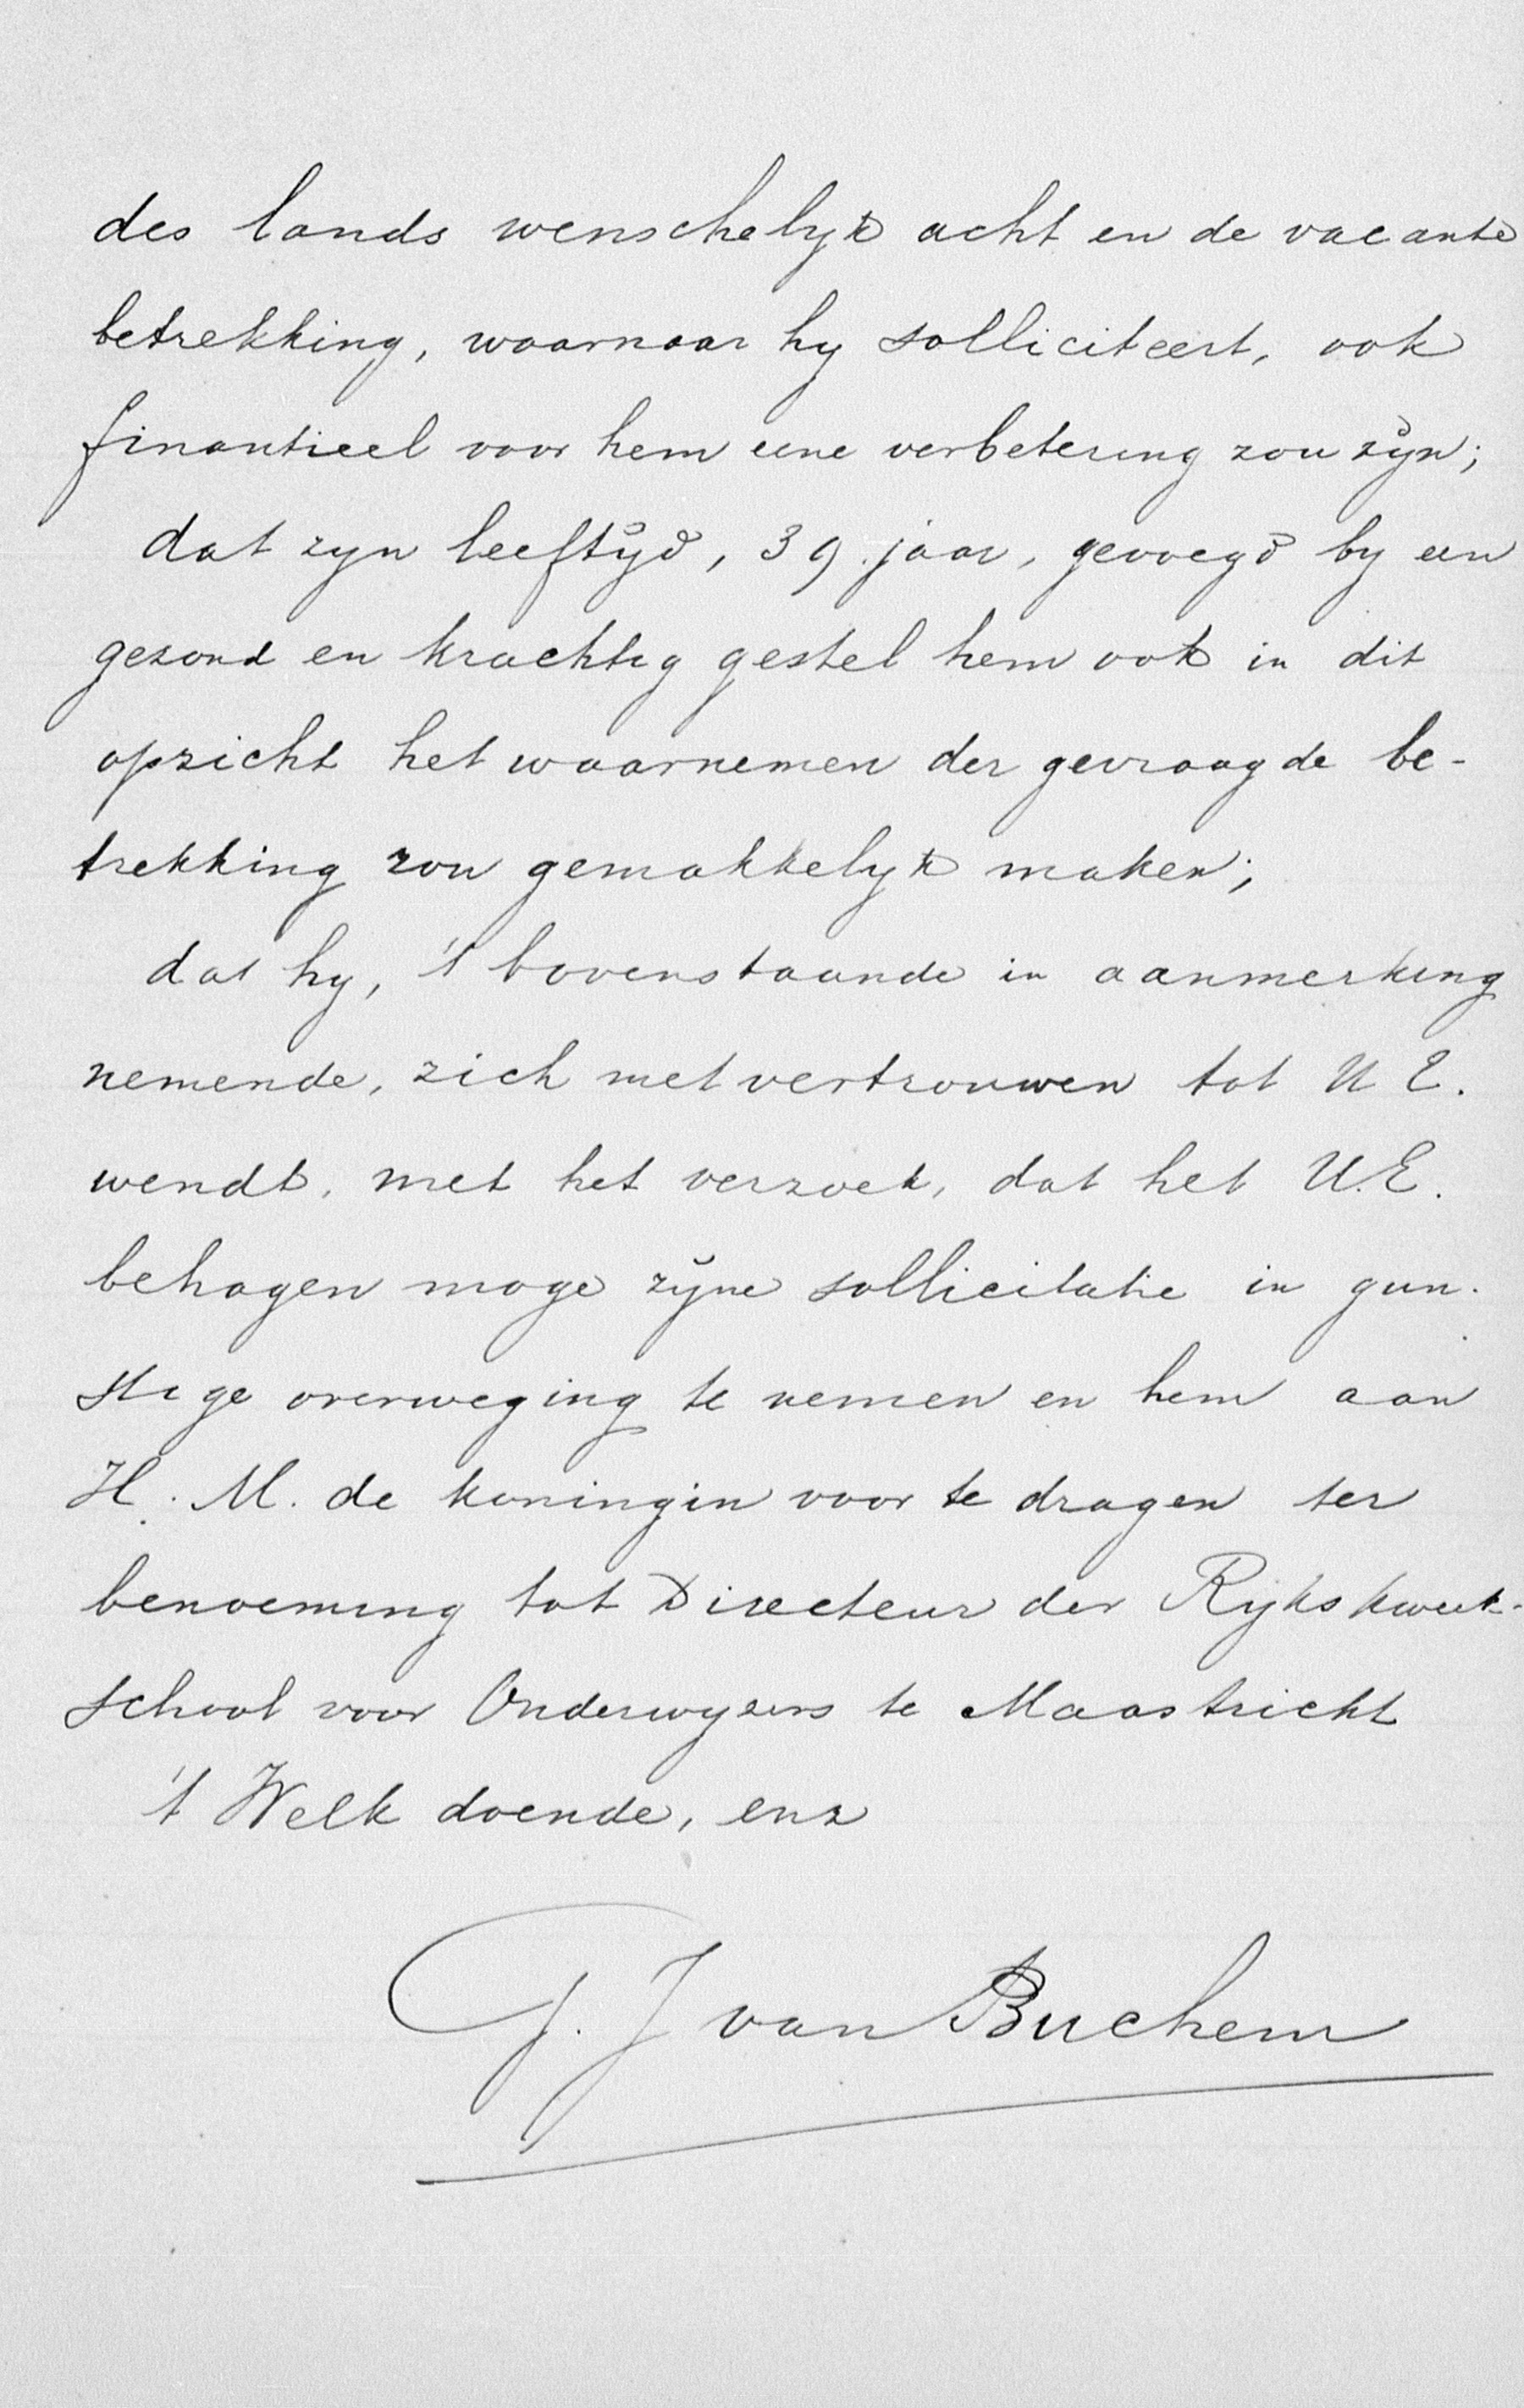 des lands wenschelyk acht en de vacante
betrekking, waarnaar hy solliciteert, ook
finantieel voor hem eene verbetering zou zyn;
dat zyn leeftyd, 39 jaar, gevoegd by een
gezond en krachtig gestel hem ook in dit
opzicht het waarnemen der gevraagde be-
trekking zou gemakkelyk maken;
dat hy, 't bovenstaande in aanmerking
nemende, zich met vertrouwen tot U E.
wendt, met het verzoek, dat het U.E.
behagen moge zyne sollicitatie in gun-
stige overweging te nemen en hem aan
H. M. de koningin voor te dragen ter
benoeming tot Directeur der Rykskweek-
school voor Onderwyzers te Maastricht
't Welk doende, enz
G. J van Buchem